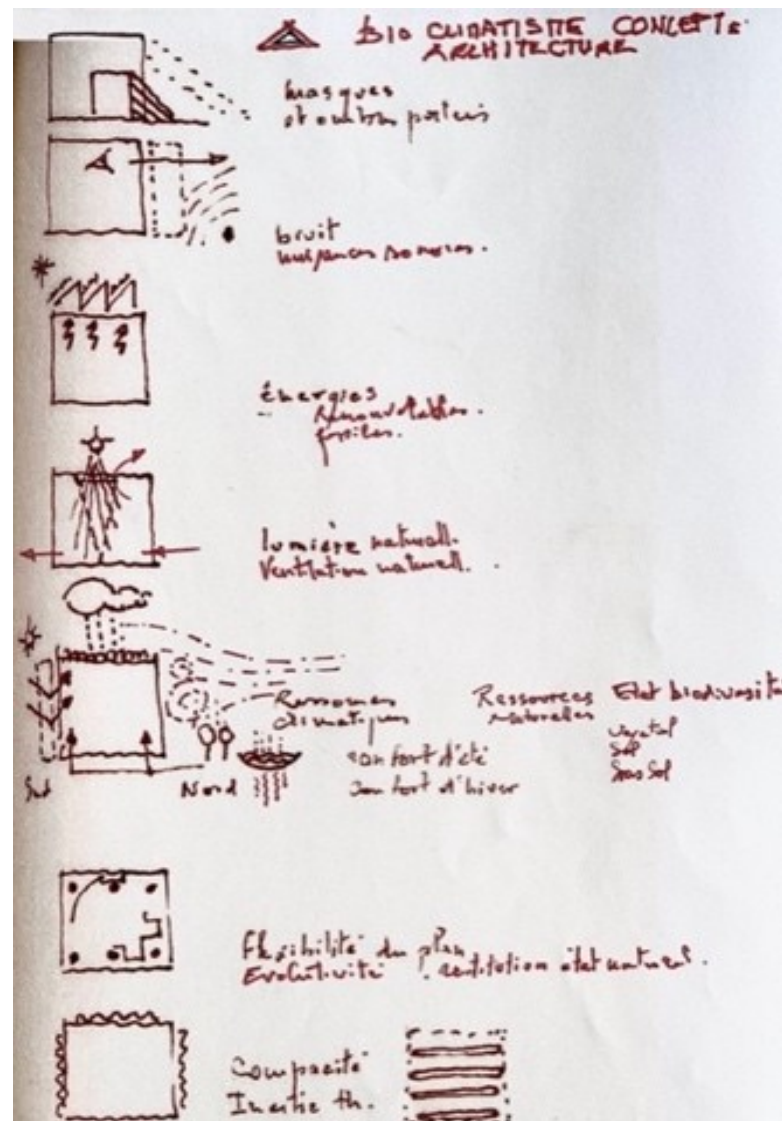 BIO CLIMATISME CONCEPTE
ARCHITECTURE
masques
et ombres portées
bruit
nuisances sonores.
énergies
renouvelables.
fossiles.
lumière naturell.
Ventilation naturell.
Ressources
climatiques
Ressources
naturelles
Etat biodiversité
végétal
Sol
Sous Sol
confort d'été
confort d'hiver
Sud
Nord
Fléxibilité du plan
Evolutivité . restitution état naturel.
Compacité
Inertie th.